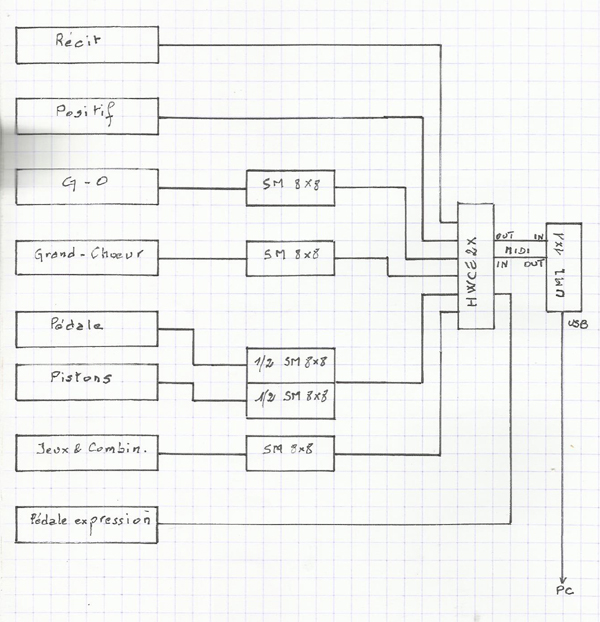 Récit
Positif
G-O
SM 8x8
Grand-Chœur
SM 8x8
Pédale
1/2 SM 8x8
Pistons
1/2 SM 8x8
Jeux & Combin.
SM 8x8
Pédale expression
HWCE2X
OUT IN
MIDI
IN OUT
UM1 1x1
USB
PC